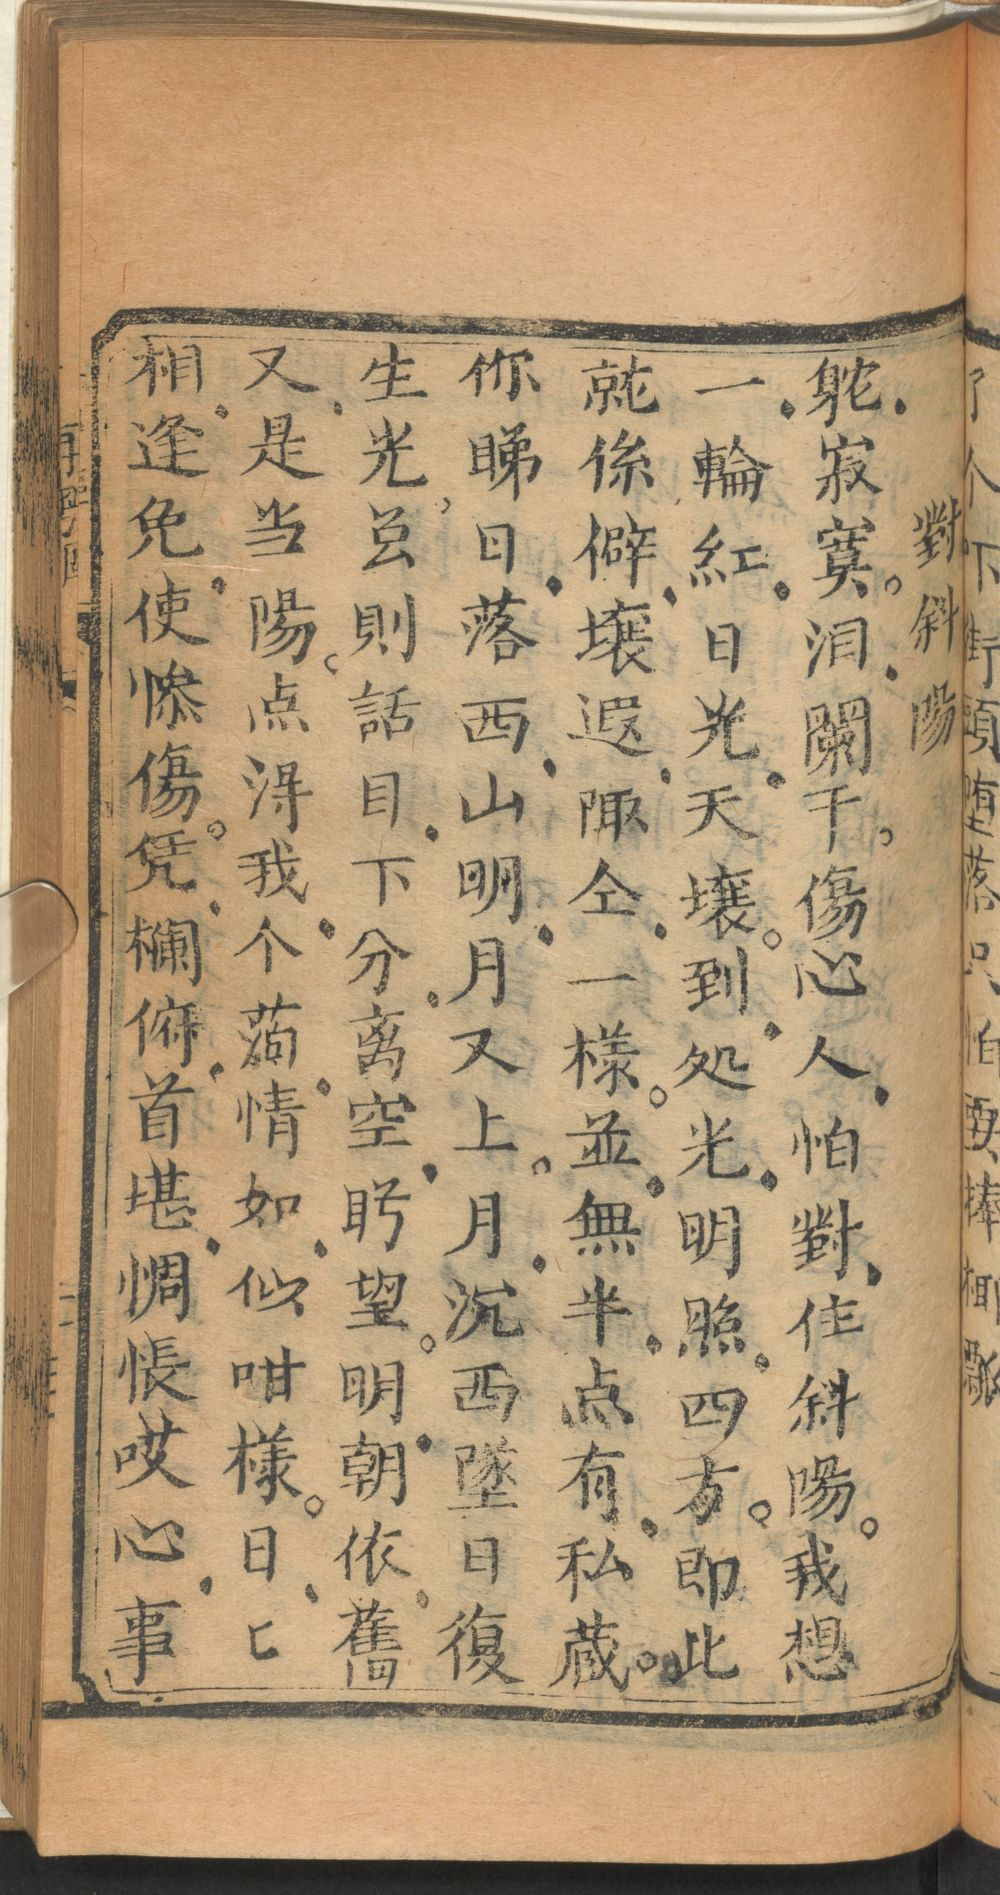 對斜陽
躭寂寞。泪闌干。傷心人怕對住斜陽。我想
一輪紅日光天壤。到処光明照四方。即此
就係僻壤遐陬仝一樣。並無半点有私藏。
你睇日落西山明月又上。月沉西墜日復
生光。㒷則話目下分离空盻望。明朝依舊
又是当陽。点淂我个薄情如似咁樣。日〻
相逢免使慘傷。凭欄俯首堪惆悵哎心事